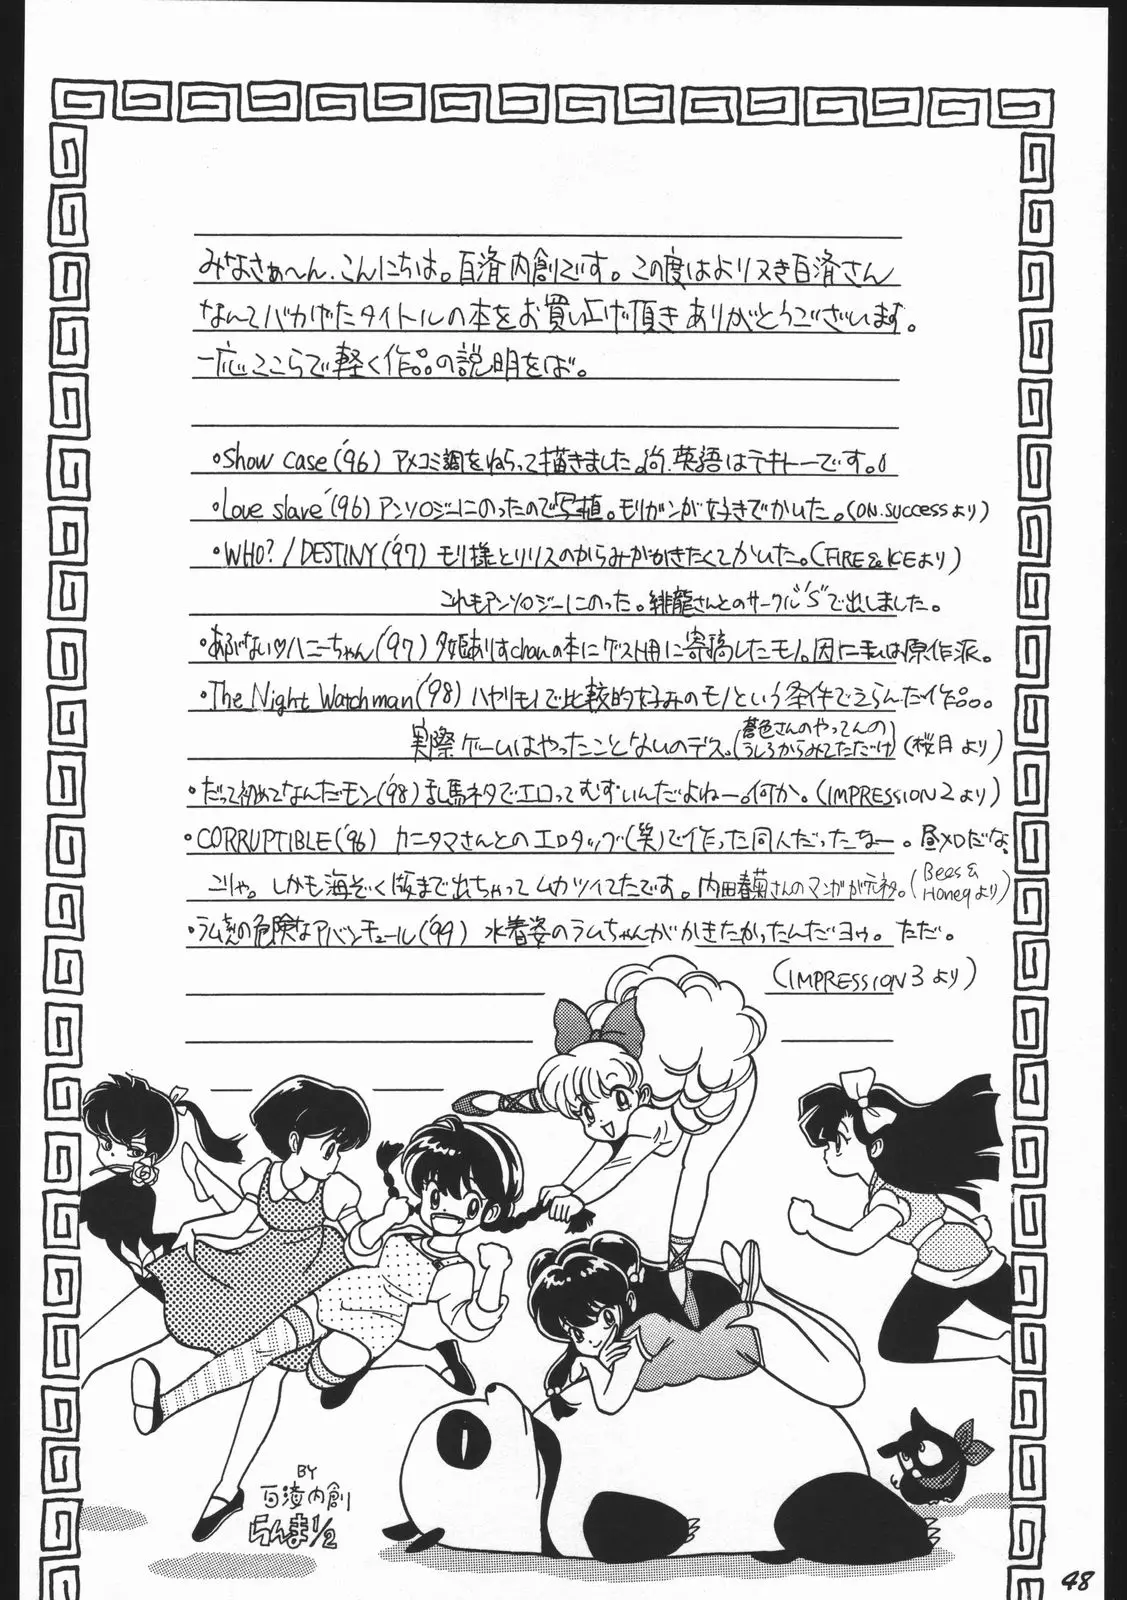 みなさぁ〜ん.こんにちは。百済内創です。この度はよりヌき百済さん
なんてバカげたタイトルの本をお買い上げ頂きありがとうございます。
一応ここらで軽く作品の説明をば。
•Show case('96) アメコミ調をねらって描きました。尚、英語はテキトーです。
•Love slave('96) アンソロジーにのったので写植。モリガンが好きでかいた。(ON.SUCCESSより)
•WHO?/DESTINY('97) モリ様とリリスのからみがかきたくてかいた。(FIRE&ICEより)
これもアンソロジーにのった。緋龍さんとのサークル"S"で出しました。
•あぶない♡ハニーちゃん('97) 夕姫ありすchanの本にゲスト用に寄稿したモノ。因に私は原作派。
•The Night Watchman('98) ハヤリモノで比較的好みのモノという条件でえらんだ作品。
実際ゲームはやったことないのデス。(蒼色さんのやってんのうしろからみてただけ) (桜月より)
•だって初めてなんだモン('98) 乱馬ネタでエロってむずいんだよねー。何か。(IMPRESSION2より)
•CORRUPTIBLE('96) カニタマさんとのエロタッグ(笑)で作った同人だったなー。昼メロだな、
こりゃ。しかも海ぞく版まで出ちゃってムカツイてたです。内田春菊さんのマンガが元ネタ。(Bees & Honeyより)
•ラム的の危険なアバンチュール('99) 水着姿のラムちゃんがかきたかったんだヨゥ。ただ。
(IMPRESSION3より)
BY
百済内創
らんま1/2
48